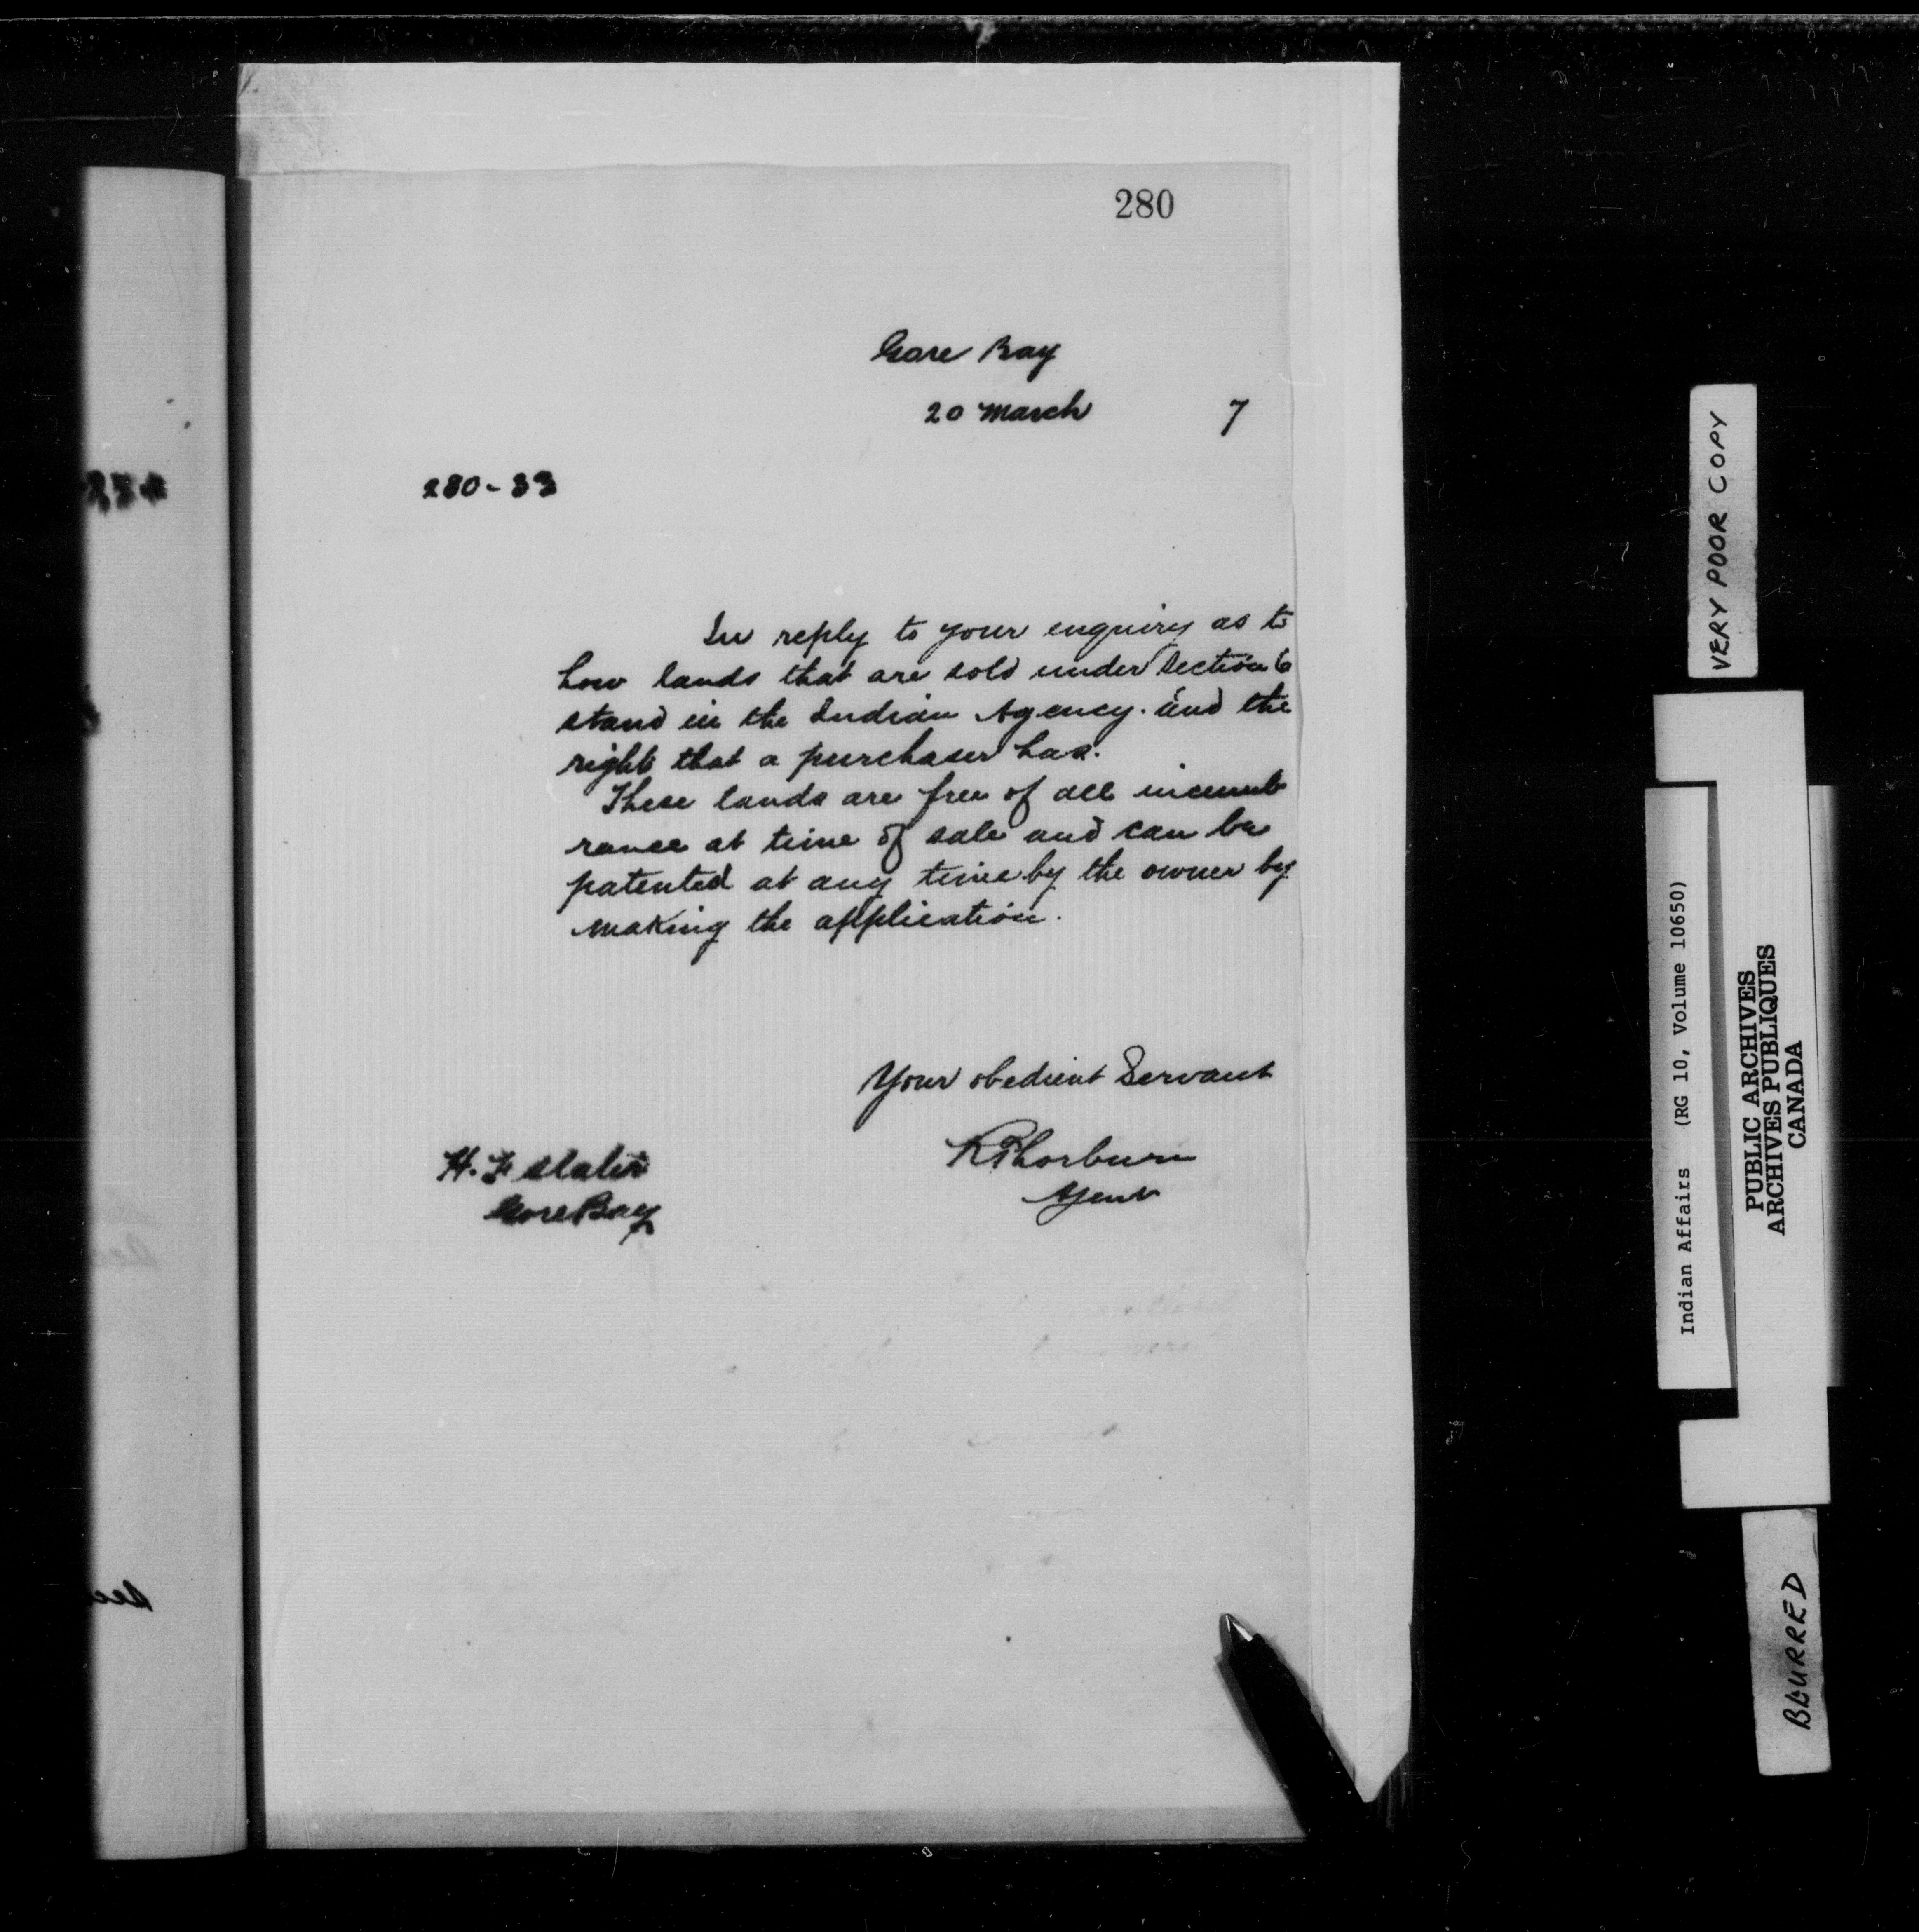 280
Gore Bay
20 March 7
280-33
In reply to your enquiry as to
how lands that are sold under Section 6
stand in the Indian Agency. and the
right that a purchaser has.
These lands are free of all incumb
rance at time of sale and can be
patented at any time by the owner by
making the application.
Your obedient Servant
R Thorburn
Agent
H. F
Gore Bay
VERY POOR COPY
Indian Affairs (RG 10, Volume 10650)
PUBLIC ARCHIVES
ARCHIVES PUBLIQUES
CANADA
BLURRED